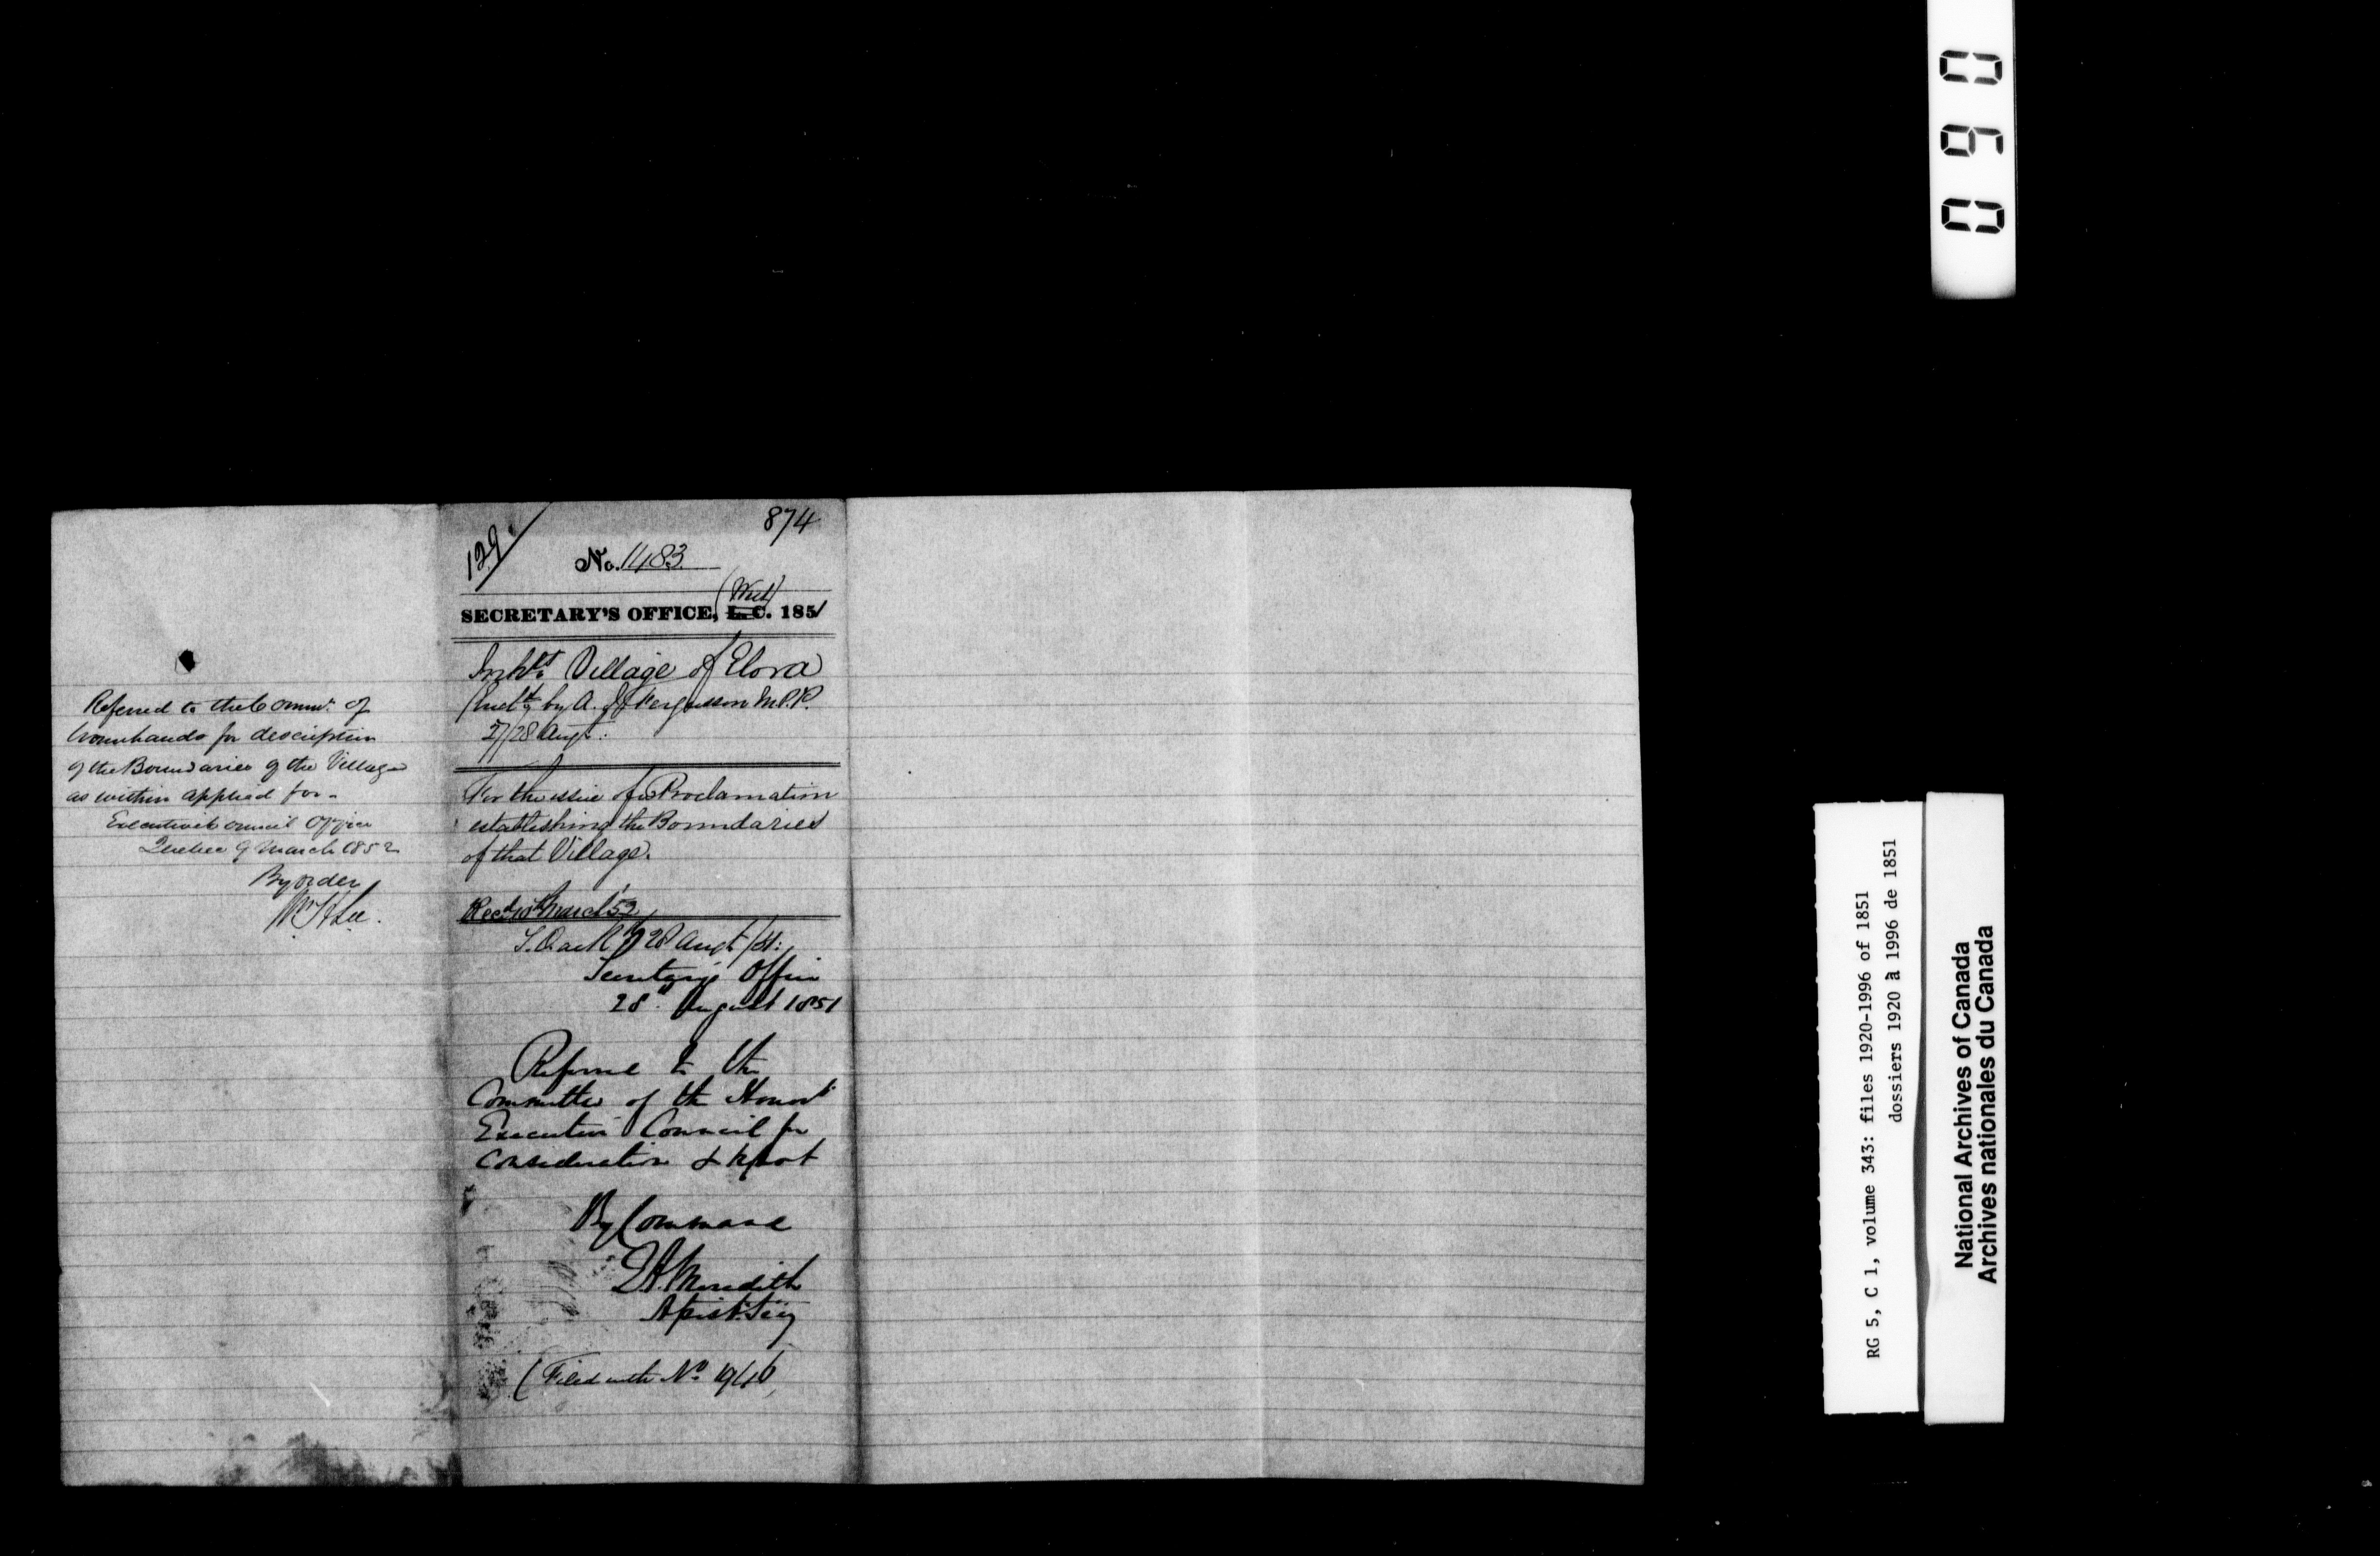 Referred to the Commr. of
Crown Lands for description
of the Boundaries of the Village
as within applied for -
Executive Council Office
Quebec 9 March 1852
By order
Wm H Lee.
129
874
No. 1483
(West)
SECRETARY'S OFFICE, L. C. 1851
Inhbts Village of Elora
by A. J. Fergusson M.P.P.
27/28 Augt:
For the issue of a Proclamation
establishing the Boundaries
of that Village.
Recd 10th March '52
28 Augt /51:
Secretary's Office
28th August 1851
Referred to the
Committee of the Honorl
Executive Council for
Consideration & report
By Command
E A. Meredith
Assist. Secy
(Filed with No 1946
0 9 0
RG 5, C 1, volume 343: files 1920-1996 of 1851
dossiers 1920 à 1996 de 1851
National Archives of Canada
Archives nationales du Canada